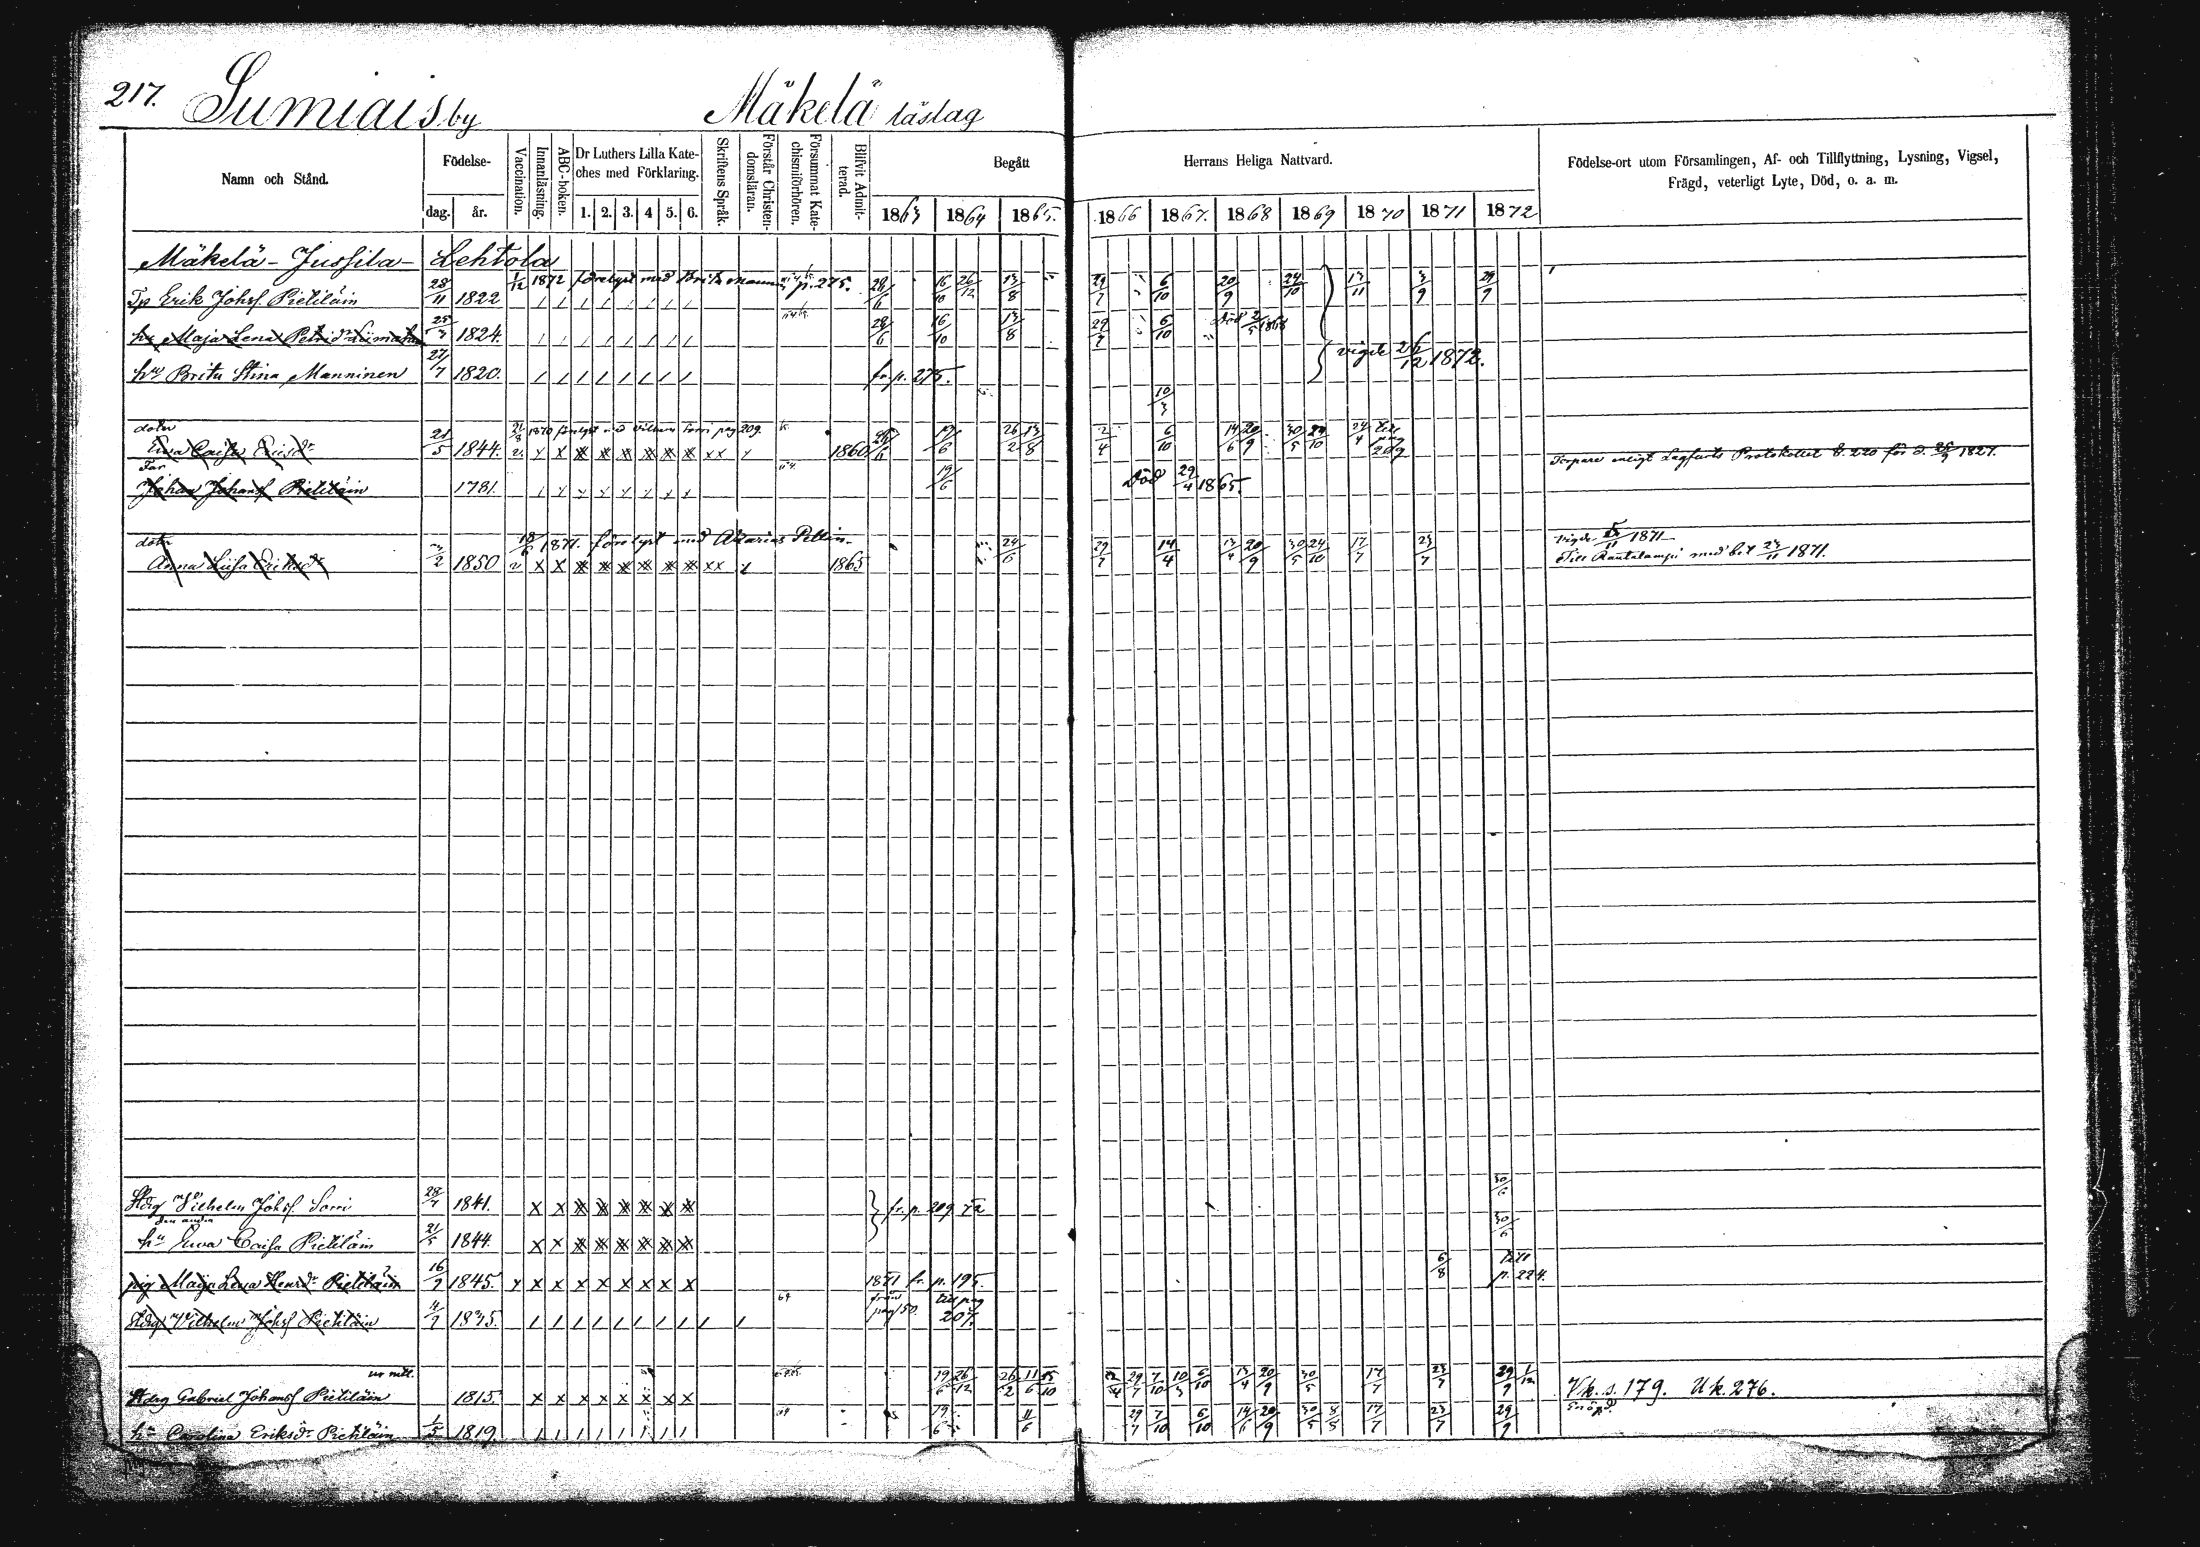 217. Sumiais by Mäkelä läslag
Namn och Stånd.
Födelse-
dag. år.
Vaccination.
Innanläsning.
ABC-boken.
Dr Luthers Lilla Kate-
ches med Förklaring.
1. 2. 3. 4 5. 6.
Skriftens Språk.
Förstår Christen-
domsläran.
Försummat Kate-
chismiförhören.
Blifvit Admit-
terad.
Begått
1863 1864 1865.
Herrans Heliga Nattvard.
1866 1867. 1868 1869 1870 1871 1872
Födelse-ort utom Församlingen, Af- och Tillflyttning, Lysning, Vigsel,
Frägd, veterligt Lyte, Död, o. a. m.
Mäkelä - Jussila - Lehtola
1/12 1872 förelyst med Brita p. 275.
Tp Erik Johsf Pietiläin 28/11 1822 28/6 16/10 26/12 13/8 29/7 6/10 20/9 24/10 13/11 3/9 29/9
hu Maja Lena 25/3 1824. 28/6 16/10 13/8 29/7 6/10 Död 2/5 1868
vigde 26/12 1872.
hu Brita Stina Manninen 27/7 1820. fr. p. 275.
10/3
doter
21/8 1870 förelyst med Vilhelm Sorri pag 209.
Ewa Caisa Ericsdr 21/5 1844. 1860 19/6 26/2 13/8 2/4 6/10 14/6 20/9 30/5 24/10 24/4 till pag 209
Torpare enligt Lagfarts Protokollet § 220 för d. 1827.
Far
Johan Johansf Pietiläin 1781. 19/6 Död 29/4 1865.
doter
18/6 1871. förelyst med
Anna Lisa Eriksdr 3/2 1850 1865 24/6 29/7 14/4 13/4 20/9 30/5 24/10 17/7 23/7
vigde 5/11 1871
Till Rautalampi med bet 23/11 1871.
30/6
Stdrg Vilhelm Johsf Sorri 28/7 1841. fr. p. 209 72
30/6
hu Ewa Caisa Pietiläin 21/5 1844.
pig Maja Lena Henrdr Pietiläin 16/9 1845. 1871 fr. p. 195. 6/8 till p. 224.
Stdrg Vilhelm Johsf Pietiläin 4/9 1835. 64 från pag 50. till pag 207.
Stdrg Gabriel Johansf Pietiläin 1815. 19/6 26/12 26/2 11/6 15/10 22/4 29/7 7/10 10/3 6/10 13/4 20/9 30/5 17/7 23/7 29/9 1/12
Vk. s. 179. Uk. 276.
hu Carolina Eriksdr Pietiläin 1/5 1819. 19/6 11/6 29/7 7/10 6/10 14/6 20/9 30/5 8/5 17/7 23/7 29/9